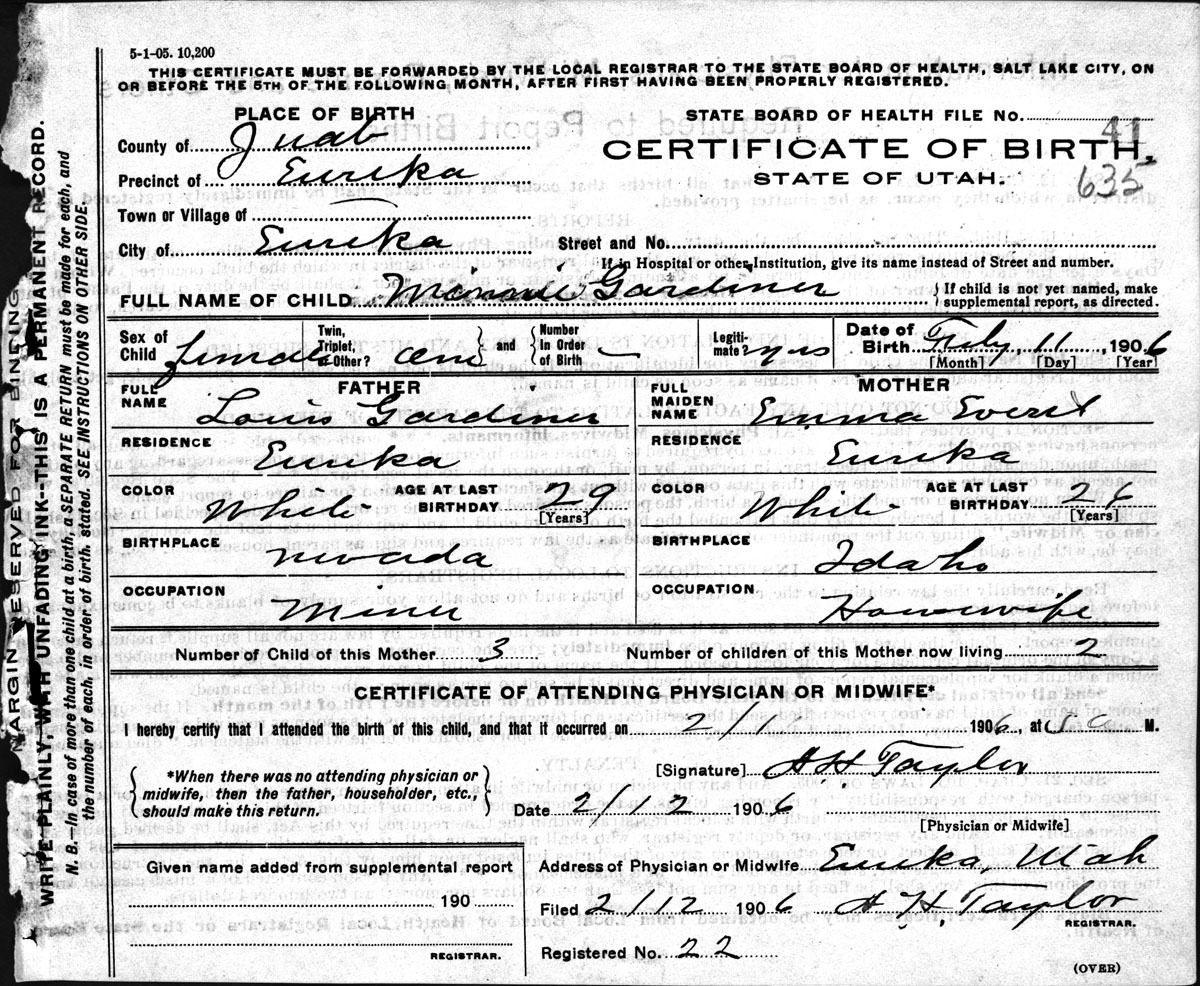 5-1-05. 10,200
THIS CERTIFICATE MUST BE FORWARDED BY THE LOCAL REGISTRAR TO THE STATE BOARD OF HEALTH, SALT LAKE CITY, ON
OR BEFORE THE 5TH OF THE FOLLOWING MONTH, AFTER FIRST HAVING BEEN PROPERLY REGISTERED.
PLACE OF BIRTH
County of Juab
Precinct of Eureka
Town or Village of
City of Eureka
STATE BOARD OF HEALTH FILE No. 41
CERTIFICATE OF BIRTH.
STATE OF UTAH. 635
Street and No.
If in Hospital or other Institution, give its name instead of Street and number.
FULL NAME OF CHILD Minnie Gardiner { If child is not yet named, make
supplemental report, as directed.
Sex of Child female Twin, Triplet, or Other? and { Number In Order of Birth – Legiti-mate? yes Date of Birth Feby 11, 1906
[Month] [Day] [Year]
FATHER
FULL NAME Louis Gardiner
RESIDENCE Eureka
COLOR White AGE AT LAST BIRTHDAY 29 [Years]
BIRTHPLACE Nevada
OCCUPATION Miner
MOTHER
FULL MAIDEN NAME Emma
RESIDENCE Eureka
COLOR White AGE AT LAST BIRTHDAY 26 [Years]
BIRTHPLACE Idaho
OCCUPATION Housewife
Number of Child of this Mother 3 Number of children of this Mother now living 2
CERTIFICATE OF ATTENDING PHYSICIAN OR MIDWIFE*
I hereby certify that I attended the birth of this child, and that it occurred on 2/11 1906, at M.
{ *When there was no attending physician or
midwife, then the father, householder, etc.,
should make this return. }
[Signature] A H Taylor
Date 2/12 1906
[Physician or Midwife]
Given name added from supplemental report
190
REGISTRAR.
Address of Physician or Midwife Eureka, Utah
Filed 2/12 1906 A H Taylor
REGISTRAR.
Registered No. 22
(OVER)
MARGIN RESERVED FOR BINDING
WRITE PLAINLY WITH UNFADING INK--THIS IS A PERMANENT RECORD.
N. B.—In case of more than one child at a birth, a SEPARATE RETURN must be made for each, and
the number of each, in order of birth, stated. SEE INSTRUCTIONS ON OTHER SIDE.